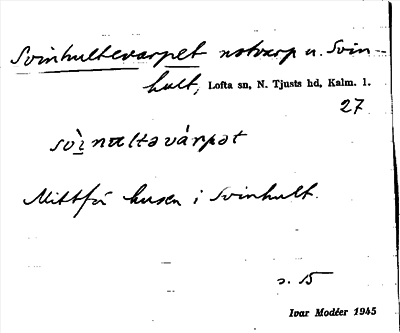 Svinhultevarpet notvarp u. Svin-
hult, Lofta sn, N. Tjusts hd, Kalm. l.
27
svìnᴜltəvárpət
Mittför husen i Svinhult.
s. 15
Ivar Modéer 1945